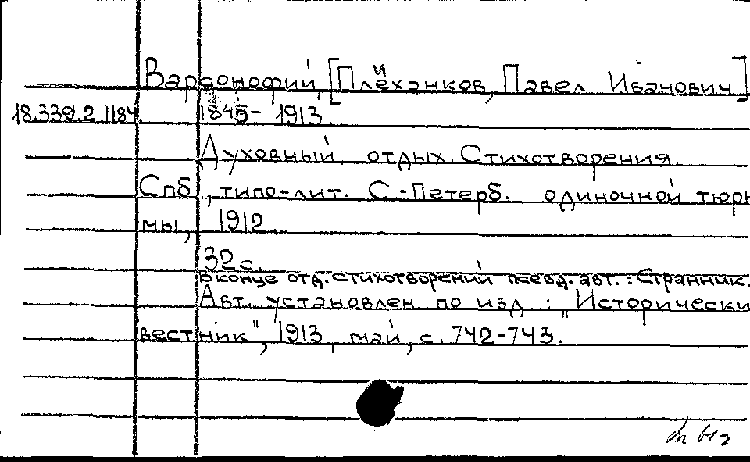 Варсонофий, [Плеханков, Павел Иванович]
18.339.2.1184 1845- 1913
Духовный отдых. Стихотворения.
Спб., типо-лит. С.-Петерб. одиночной тюрь
мы, 1912
32 с.
В конце отд. стихотворений псевд. авт.: Странник.
Авт. установлен по изд.: „Исторически
вестник", 1913, май, с. 742-743.